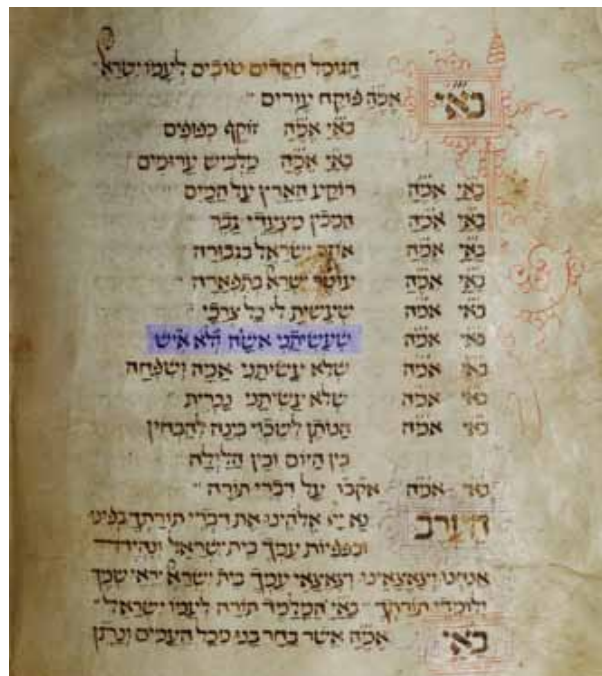 הגומל חסדים טובים לעמו ישרא'
בא"י אמ"ה פוקח עורים
בא"י אמ"ה זוקף כפופים
בא"י אמ"ה מלביש ערומים
בא"י אמ"ה רוקע הארץ על המים
בא"י אמ"ה המכין מצעדי גבר
בא"י אמ"ה אוזר ישראל בגבורה
בא"י אמ"ה עוטר ישרא' בתפארה
בא"י אמ"ה שעשית לי כל צרכי
בא"י אמה שעשיתני אשה ולא איש
בא"י אמה שלא עשיתני אמה ושפחה
בא"י אמה שלא עשיתני נכרית
בא"י אמה הנותן לשכוי בינה להבחין
בין היום ובין הלילה
אמה אקבו על דברי תורה
הערב נא יי' אלהינו את דברי תורתך בפינו
ובפפיות עמך בית ישראל ונהיה
אנחנו וצאצאינו וצאצאי עמך בית ישרא' יראי שמך
ולומדי תורתך בא"י המלמד תורה לעמו ישראל
בא"י אמ"ה אשר בחר בנו מכל העמים ונתן